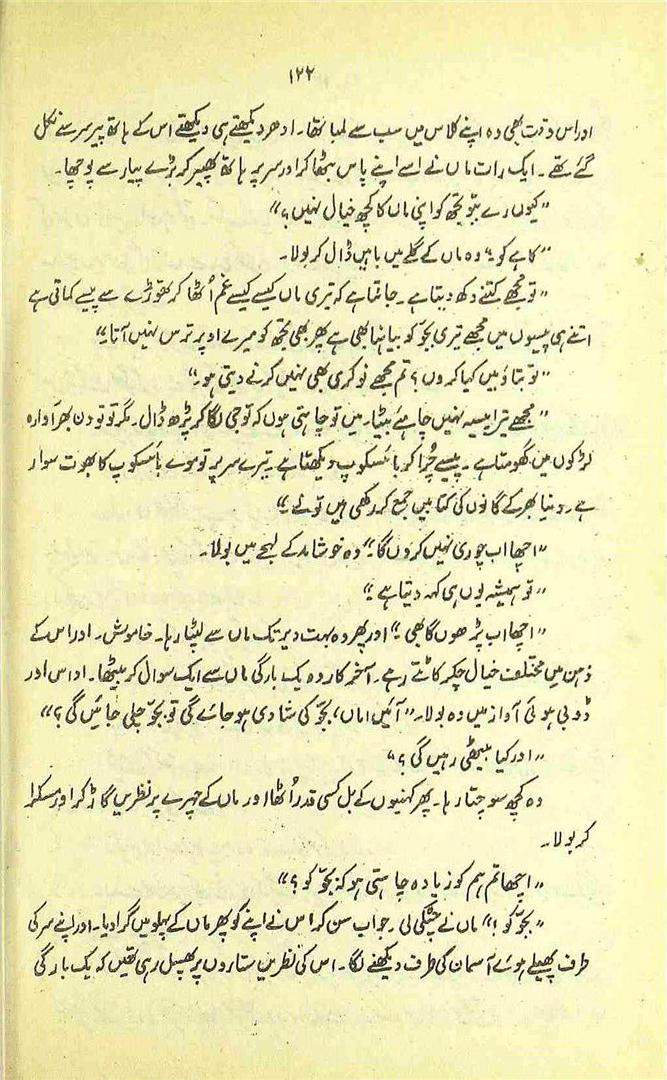 ۱۲۲
اور اس وقت بھی وہ اپنے کلاس میں سب سے لمبا تھا۔ ادھر دیکھتے ہی دیکھتے اس کے ہاتھ پیر سر سے نکل
گئے تھے۔ ایک رات ماں نے اسے اپنے پاس بٹھا کر اور سر پر ہاتھ پھیر کر بڑے پیار سے پوچھا۔
”کیوں رے ببّو تجھ کو اپنی ماں کا کچھ خیال نہیں؟“
”کاہے کو؟“ وہ ماں کے گلے میں باہیں ڈال کر بولا۔
”تو مجھے کتنے دکھ دیتا ہے۔ جانتا ہے کہ تیری ماں کیسے کیسے غم اُٹھا کر تھوڑے سے پیسے کماتی ہے
اتنے ہی پیسوں میں مجھے تیری بجّو کو بیاہنا بھی ہے پھر بھی تجھ کو میرے اوپر ترس نہیں آتا؟“
”تو بتاؤ میں کیا کروں؟ تم مجھے نوکری بھی نہیں کرنے دیتی ہو۔“
”مجھے تیرا پیسہ نہیں چاہئے بیٹا۔ میں تو چاہتی ہوں کہ تو جی لگا کر پڑھ ڈال۔ مگر تو تو دن بھر آوارہ
لڑکوں میں گھومتا ہے۔ پیسے چُرا کر بائسکوپ دیکھتا ہے۔ تیرے سر پر تو موے بائسکوپ کا بھوت سوار
ہے۔ دنیا بھر کے گانوں کی کتابیں جمع کر رکھی ہیں تونے۔“
”اچھا اب چوری نہیں کروں گا۔“ وہ خوشامد کے لہجے میں بولا۔
”تو ہمیشہ یوں ہی کہہ دیتا ہے۔“
”اچھا اب پڑھوں گا بھی۔“ اور پھر وہ بہت دیر تک ماں سے لپٹا رہا۔ خاموش۔ اور اس کے
ذہن میں مختلف خیال چکر کاٹتے رہے۔ آخر کار وہ یک بارگی ماں سے ایک سوال کر بیٹھا۔ اداس اور
ڈوبی ہوئی آواز میں وہ بولا۔ ”آئیں اماں، بجّو کی شادی ہو جائے گی تو بجّو چلی جائیں گی؟“
”اور کیا بیٹھی رہیں گی؟“
وہ کچھ سوچتا رہا۔ پھر کہنیوں کے بل کسی قدر اُٹھا اور ماں کے چہرے پر نظریں گاڑ کر اور مسکرا
کر بولا۔
”اچھا تم ہم کو زیادہ چاہتی ہو کہ بجّو کو؟“
”بجّو کو!“ ماں نے چٹکی لی۔ جواب سن کر اس نے اپنے کو پھر ماں کے پہلو میں گرا دیا۔ اور اپنے سر کی
طرف پھیلے ہوئے آسمان کی طرف دیکھنے لگا۔ اس کی نظریں ستاروں پر پھسل رہی تھیں کہ یک بارگی